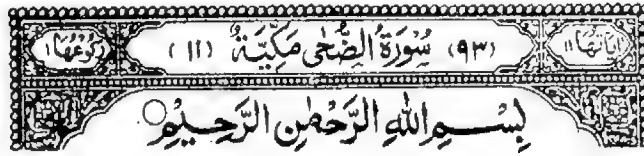 اٰيَاتُهَا ١١ (٩٣) سُوْرَةُ الضُّحٰى مَكِّيَّةٌ (١١) رُكُوْعُهَا ١
بِسْمِ اللهِ الرَّحْمٰنِ الرَّحِيْمِ